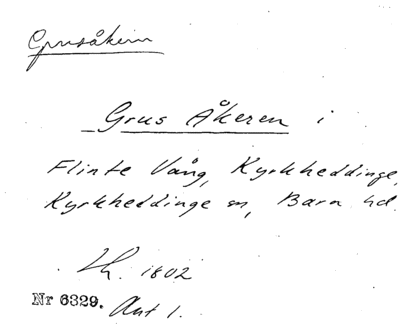 Grusåkern
Grus Åkeren i
Flinte Vång, Kyrkheddinge,
Kyrkheddinge sn, Bara hd.
Lh. 1802
Nr 6329. Akt 1.